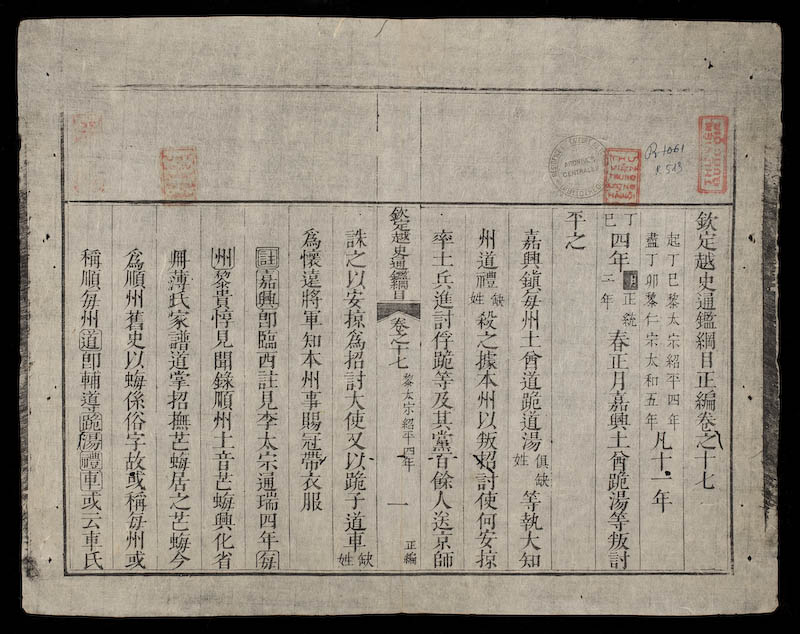 欽定越史通鑑綱目正編卷之十七
起丁巳黎太宗紹平四年
盡丁卯黎仁宗太和五年
凡十一年
丁巳四年明正統二年春正月嘉興土酋跪湯等叛討
平之
嘉興鎮每州土酋道跪道湯俱缺姓等執大知
州道禮缺姓殺之據本州以叛招討使何安掠
率土兵進討俘跪等及其黨百餘人送京師
欽定越史通鑑綱目 卷之十七 黎太宗紹平四年 一 正編
誅之以安掠爲招討大使又以跪子道車缺姓
爲懷遠將軍知本州事賜冠帶衣服
註嘉興卽臨西註見李太宗通瑞四年每
州黎貴惇見聞錄順州土音芒𧋟興化省
冊薄氏家譜道掌招撫芒𧋟居之芒𧋟今
爲順州舊史以𧋟係俗字故或稱每州或
稱順每州道卽輔導跪湯禮車或云車氏
R.1061
R 513
ARCHIVES
CENTRALES